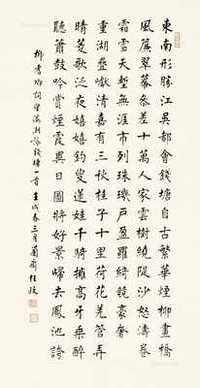 東南形勝江吳都會錢塘自古繁華煙柳畫橋
風簾翠幕參差十萬人家雲樹繞隄沙怒濤卷
霜雪天塹無涯市列珠璣戶盈羅綺競豪奢
重湖疊巘清嘉有三秋桂子十里荷花羌管弄
晴菱歌泛夜嬉嬉釣叟蓮娃千騎擁高牙乘醉
聽簫鼓吟賞煙霞異日圖將好景歸去鳳池誇
柳耆卿詞望海潮詠錢塘一首 壬戌春三月蘭齋任政